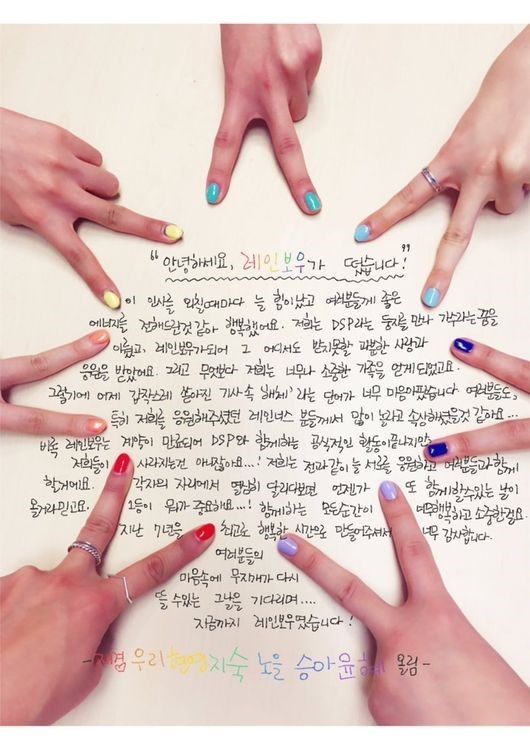 "안녕하세요, 레인보우가 떴습니다!"
이 인사를 외칠때마다 늘 힘이났고 여러분들게 좋은
에너지를 전해드린것 같아 행복했어요. 저희는 DSP라는 둥지를 만나 가수라는 꿈을
이뤘고, 레인보우가되어 그 어디서도 받지못할 과분한 사랑과
응원을 받았어요. 그리고 무엇보다 저희는 너무나 소중한 가족을 얻게되었고요.
그렇기에 어제 갑작스레 쏟아진 기사속 '해체'라는 단어가 너무 마음아팠습니다 여러분들도,
특히 저희를 응원해주셨던 레인너스 분들께서 많이 놀라고 속상하셨을것 같아요...
비록 레인보우는 계약이 만료되어 DSP와 함께하는 공식적인 활동이끝나지만
저희들이 사라지는건 아니잖아요...! 저희는 전과같이 늘 서로를 응원하고 여러분들과함께
할거에요. 각자의 자리에서 열심히 달리다보면 언젠가 또 함께할수있는 날이
올거라믿고요. 1등이 뭐가 중요해요...! 함께하는 모든순간이 행복하고 소중한걸요.
지난 7년을 최고로 행복한 시간으로 만들어주셔서 너무 감사합니다.
여러분들의
마음속에 무지개가 다시
뜰 수있는 그날을 기다리며....
지금까지 레인보우였습니다!
- 재경 우리 현영 지숙 노을 승아 윤혜 올림 -